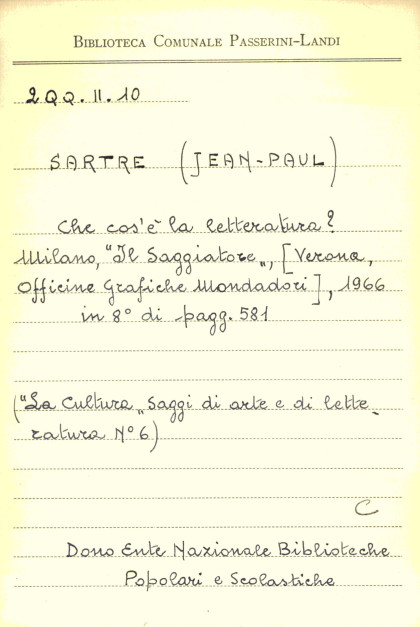 BIBLIOTECA COMUNALE PASSERINI-LANDI
2QQ.II.10
SARTRE (JEAN-PAUL)
Che cos'è la letteratura?
Milano, "Il Saggiatore„, [Verona,
Officine Grafiche Mondadori], 1966
in 8° di pagg. 581
("La Cultura„ Saggi di arte e di lette-
ratura N° 6)
C
Dono Ente Nazionale Biblioteche
Popolari e Scolastiche